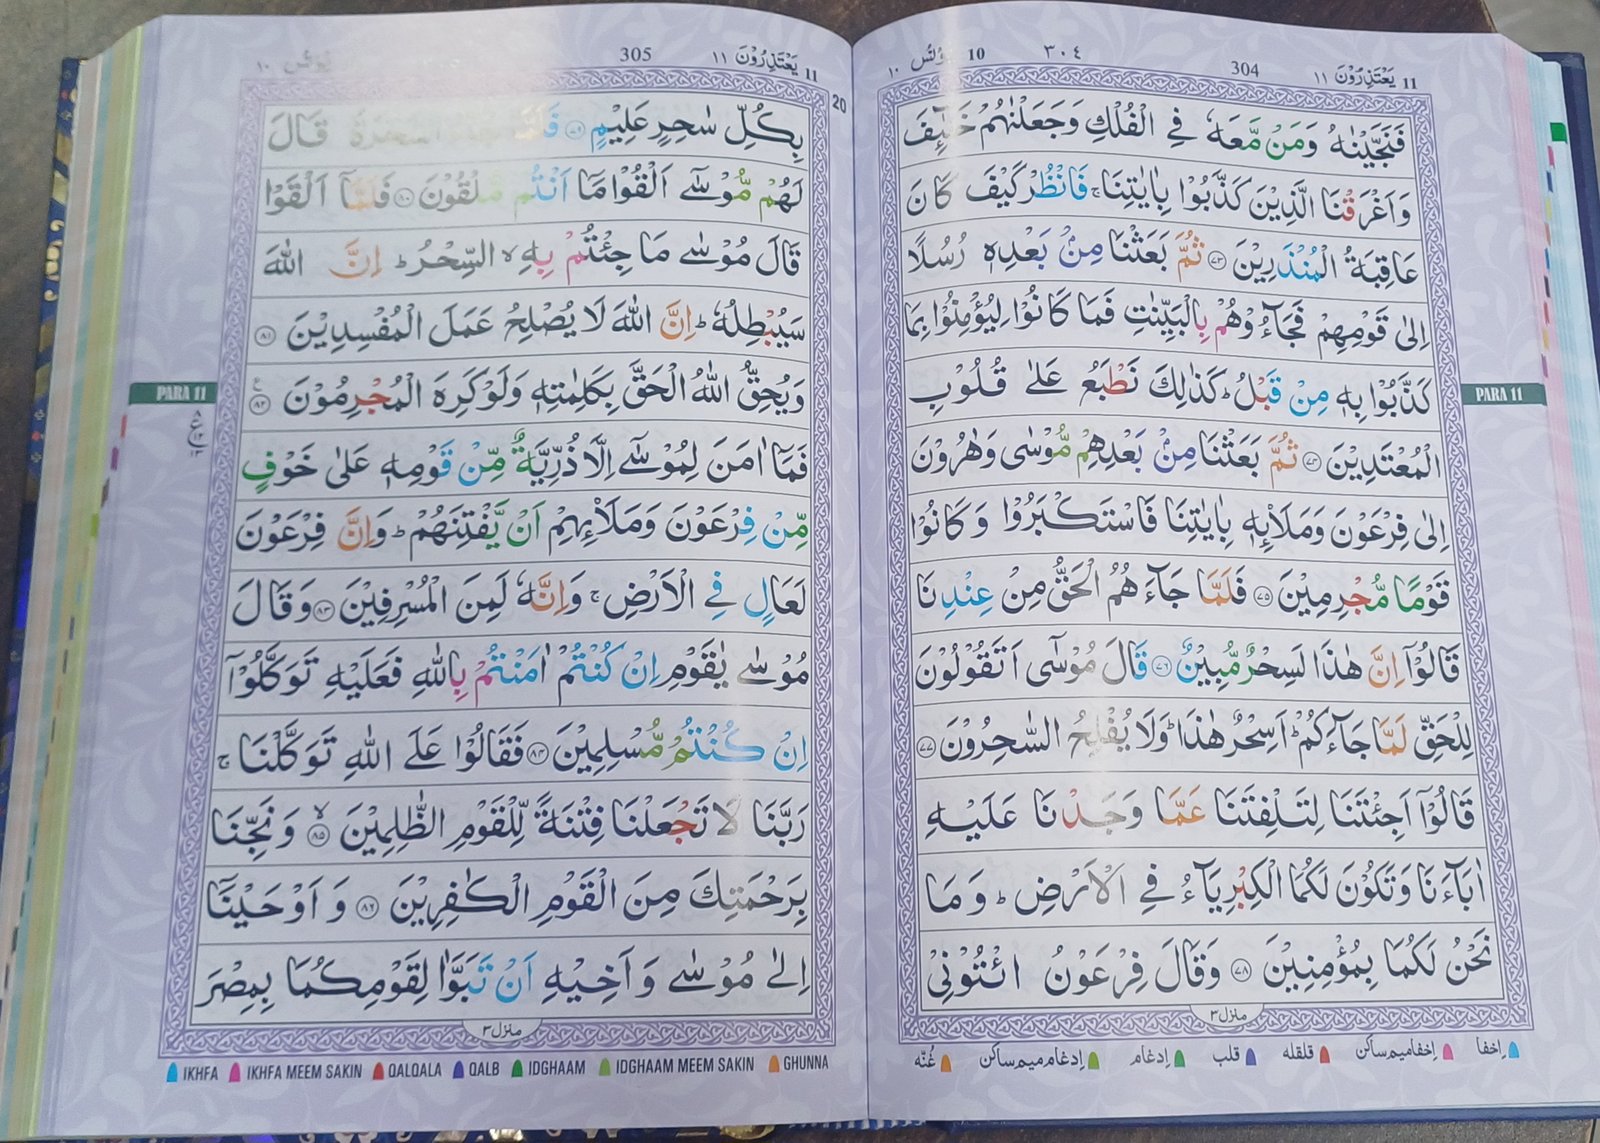 11 يَعْتَذِرُوْنَ ١١
304
٣٠٤
10
١٠
فَنَجَّيْنٰهُ وَمَنْ مَّعَهٗ فِي الْفُلْكِ وَجَعَلْنٰهُمْ خَلٰٓئِفَ
وَاَغْرَقْنَا الَّذِيْنَ كَذَّبُوْا بِاٰيٰتِنَا ۚ فَانْظُرْ كَيْفَ كَانَ
عَاقِبَةُ الْمُنْذَرِيْنَ ﴿٧٣﴾ ثُمَّ بَعَثْنَا مِنْۢ بَعْدِهٖ رُسُلًا
اِلٰى قَوْمِهِمْ فَجَآءُوْهُمْ بِالْبَيِّنٰتِ فَمَا كَانُوْا لِيُؤْمِنُوْا بِمَا
كَذَّبُوْا بِهٖ مِنْ قَبْلُ ؕ كَذٰلِكَ نَطْبَعُ عَلٰى قُلُوْبِ
الْمُعْتَدِيْنَ ﴿٧٤﴾ ثُمَّ بَعَثْنَا مِنْۢ بَعْدِهِمْ مُّوْسٰى وَهٰرُوْنَ
اِلٰى فِرْعَوْنَ وَمَلَا۟ئِهٖ بِاٰيٰتِنَا فَاسْتَكْبَرُوْا وَكَانُوْا
قَوْمًا مُّجْرِمِيْنَ ﴿٧٥﴾ فَلَمَّا جَآءَهُمُ الْحَقُّ مِنْ عِنْدِنَا
قَالُوْٓا اِنَّ هٰذَا لَسِحْرٌ مُّبِيْنٌ ﴿٧٦﴾ قَالَ مُوْسٰٓى اَتَقُوْلُوْنَ
لِلْحَقِّ لَمَّا جَآءَكُمْ ؕ اَسِحْرٌ هٰذَا ؕ وَلَا يُفْلِحُ السّٰحِرُوْنَ ﴿٧٧﴾
قَالُوْٓا اَجِئْتَنَا لِتَلْفِتَنَا عَمَّا وَجَدْنَا عَلَيْهِ
اٰبَآءَنَا وَتَكُوْنَ لَكُمَا الْكِبْرِيَآءُ فِي الْاَرْضِ ؕ وَمَا
نَحْنُ لَكُمَا بِمُؤْمِنِيْنَ ﴿٧٨﴾ وَقَالَ فِرْعَوْنُ ائْتُوْنِيْ
منزل ٣
PARA 11
اِخفا اِخفا میم ساکن قلقله قلب اِدغام اِدغام میم ساکن غُنّه
11 يَعْتَذِرُوْنَ ١١
305
يُوْنُس ١٠
20
بِكُلِّ سٰحِرٍ عَلِيْمٍ ﴿٧٩﴾ فَلَمَّا السَّحَرَةُ قَالَ
لَهُمْ مُّوْسٰٓى اَلْقُوْا مَآ اَنْتُمْ مُّلْقُوْنَ ﴿٨٠﴾ فَلَمَّآ اَلْقَوْا
قَالَ مُوْسٰى مَا جِئْتُمْ بِهِ ۙ السِّحْرُ ؕ اِنَّ اللّٰهَ
سَيُبْطِلُهٗ ؕ اِنَّ اللّٰهَ لَا يُصْلِحُ عَمَلَ الْمُفْسِدِيْنَ ﴿٨١﴾
وَيُحِقُّ اللّٰهُ الْحَقَّ بِكَلِمٰتِهٖ وَلَوْ كَرِهَ الْمُجْرِمُوْنَ ﴿٨٢﴾ ع
فَمَآ اٰمَنَ لِمُوْسٰٓى اِلَّا ذُرِّيَّةٌ مِّنْ قَوْمِهٖ عَلٰى خَوْفٍ
مِّنْ فِرْعَوْنَ وَمَلَا۟ئِهِمْ اَنْ يَّفْتِنَهُمْ ؕ وَاِنَّ فِرْعَوْنَ
لَعَالٍ فِي الْاَرْضِ ۚ وَاِنَّهٗ لَمِنَ الْمُسْرِفِيْنَ ﴿٨٣﴾ وَقَالَ
مُوْسٰى يٰقَوْمِ اِنْ كُنْتُمْ اٰمَنْتُمْ بِاللّٰهِ فَعَلَيْهِ تَوَكَّلُوْٓا
اِنْ كُنْتُمْ مُّسْلِمِيْنَ ﴿٨٤﴾ فَقَالُوْا عَلَى اللّٰهِ تَوَكَّلْنَا ۚ
رَبَّنَا لَا تَجْعَلْنَا فِتْنَةً لِّلْقَوْمِ الظّٰلِمِيْنَ ﴿٨٥﴾ۙ وَنَجِّنَا
بِرَحْمَتِكَ مِنَ الْقَوْمِ الْكٰفِرِيْنَ ﴿٨٦﴾ وَاَوْحَيْنَآ
اِلٰى مُوْسٰى وَاَخِيْهِ اَنْ تَبَوَّاٰ لِقَوْمِكُمَا بِمِصْرَ
منزل ٣
PARA 11
IKHFA IKHFA MEEM SAKIN QALQALA QALB IDGHAAM IDGHAAM MEEM SAKIN GHUNNA